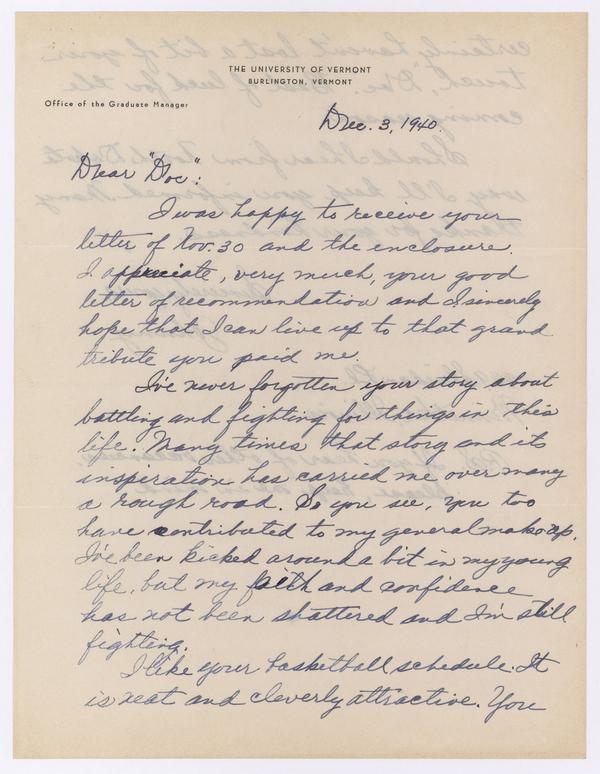 THE UNIVERSITY OF VERMONT
BURLINGTON, VERMONT
Office of the Graduate Manager
Dec. 3, 1940.
Dear "Doc":
I was happy to receive your
letter of Nov. 30 and the enclosure.
I appreciate, very much, your good
letter of recommendation and I sincerely
hope that I can live up to that grand
tribute you paid me.
I've never forgotten your story about
battling and fighting for things in this
life. Many times that story and its
inspiration has carried me over many
a rough road. So you see, you too
have contributed to my general make-up.
I've been kicked around a bit in my young
life, but my faith and confidence
has not been shattered and I'm still
fighting.
I like your basketball schedule. It
is neat and cleverly attractive. You